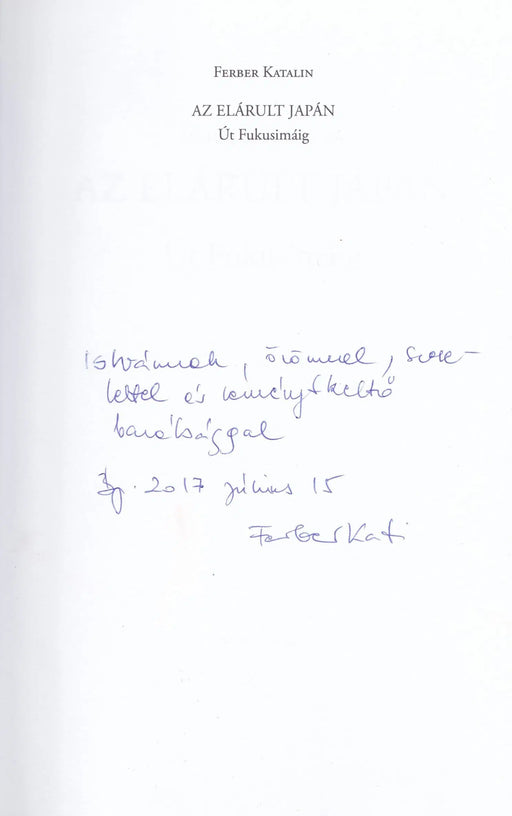 Ferber Katalin
AZ ELÁRULT JAPÁN
Út Fukusimáig
Istvánnak, örömmel, szere-
tettel és reménytkeltő
barátsággal
Bp. 2017 július 15
Ferber Kati